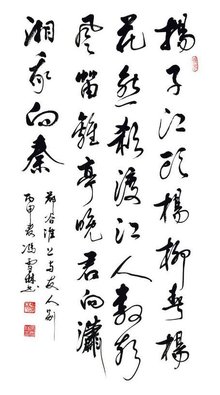 揚子江頭楊柳春楊
花愁殺渡江人數聲
風笛離亭晚君向瀟
湘我向秦
鄭谷淮上與友人別
丙申馮雪林書